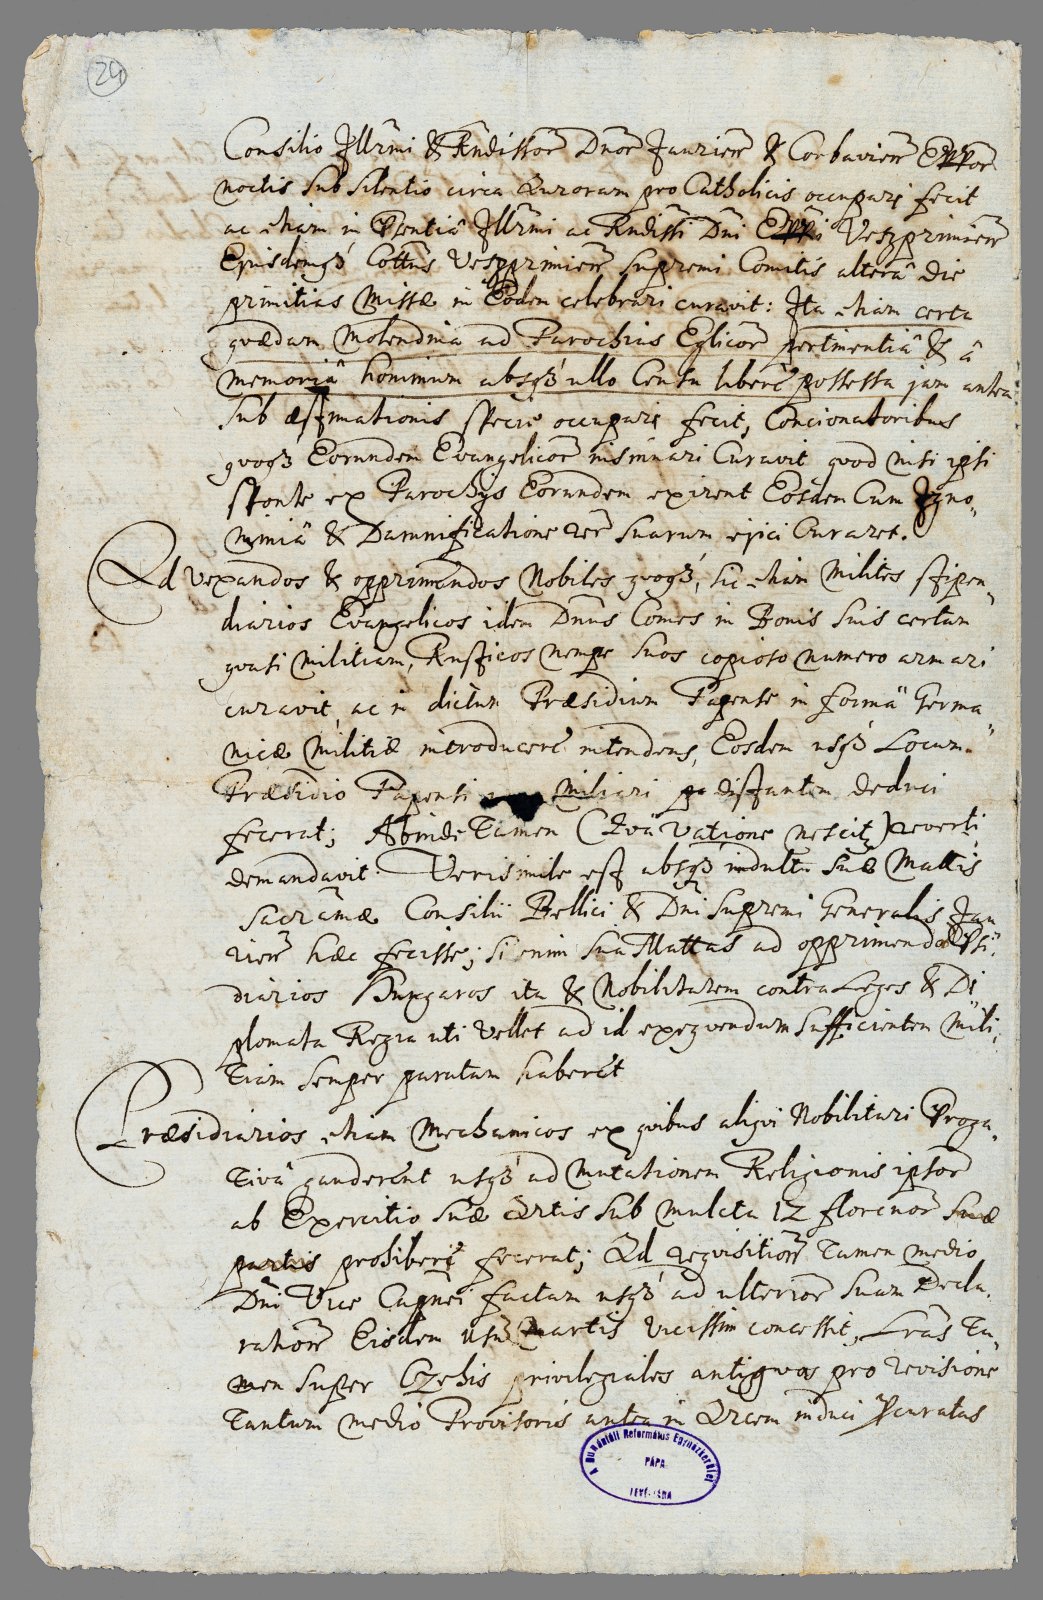 24
Consilio Jllrmi & Rndissor Dnor Jaurien & Corbavien Eppor
noctis sub silentio circa Auroram pro Catholicis occupari fecit
ac etiam in Psentiâ Jllrmi ac Rndissi Dni Eppi Veszprimien
Ejusdemqz Cottus Veszprimien supremi Comitis alterâ die
primitias Missæ in Eodem celebrari curavit: Jta etiam certa
quædam Molendina ad Parochias Eglicor pertinentiâ & â
memoriâ hominum absqz ullo Censu liberè possessa jam antea
sub æstimationis specie occupari fecit, Concionatoribus
quoqz Eorundem Evangelicor insinuari Curavit quod nisi ipsi
sponte ex Parochys Eorundem exirent Eosdem Cum Igno-
miniâ & Damnificatione rer suarum ejici Curaret.
Ad vexandos & opprimendos Nobiles quoqz, sic etiam Milites stipen-
diarios Evangelicos idem Dnus Comes in Bonis suis certam
quasi militiam, Rusticos nempe suos copioso numero armari
curavit, ac in dictum Præsidium Papense in formâ Germa-
nicæ Militiæ introducere intendens, Eosdem usqz Locum
Præsidio Papensi miliari distantem deduci
fecerat; Abinde Tamen (Quâ ratione nescitr) reverti
demandavit. Verisimile est absqz indultu suæ Mattis
sacrmæ Consilii Bellici & Dni supremi Generalis Jau
rien hæc fecisse; si enim sua Mattas ad opprimendos Psi-
diarios Hungaros ita & Nobilitatem contra Leges & Di
plomata Regia uti vellet ad id exequendum sufficientem Mili-
tiam semper paratam haberet
Præsidiarios etiam Mechanicos ex quibus aliqui Nobilitari Proga-
tivâ gauderent usqz ad mutationem Religionis ipsor
ab Exercitio suæ Artis sub mulcta 12 florenor suæ
partis prohiberi fecerat; Ad requisitionem Tamen medio
Dni Vice Capnei factam usqz ad ulteriorem suam Decla-
rationem Eisdem usum Martis vicissim concessit, Lras Ta-
men super Czehis privilegiales antiquos pro revisione
Tantum medio Provisoris antea in Arcem induci Pcuratas
A Dunántúli Református Egyházkerület
PÁPA
LEVÉLTÁRA